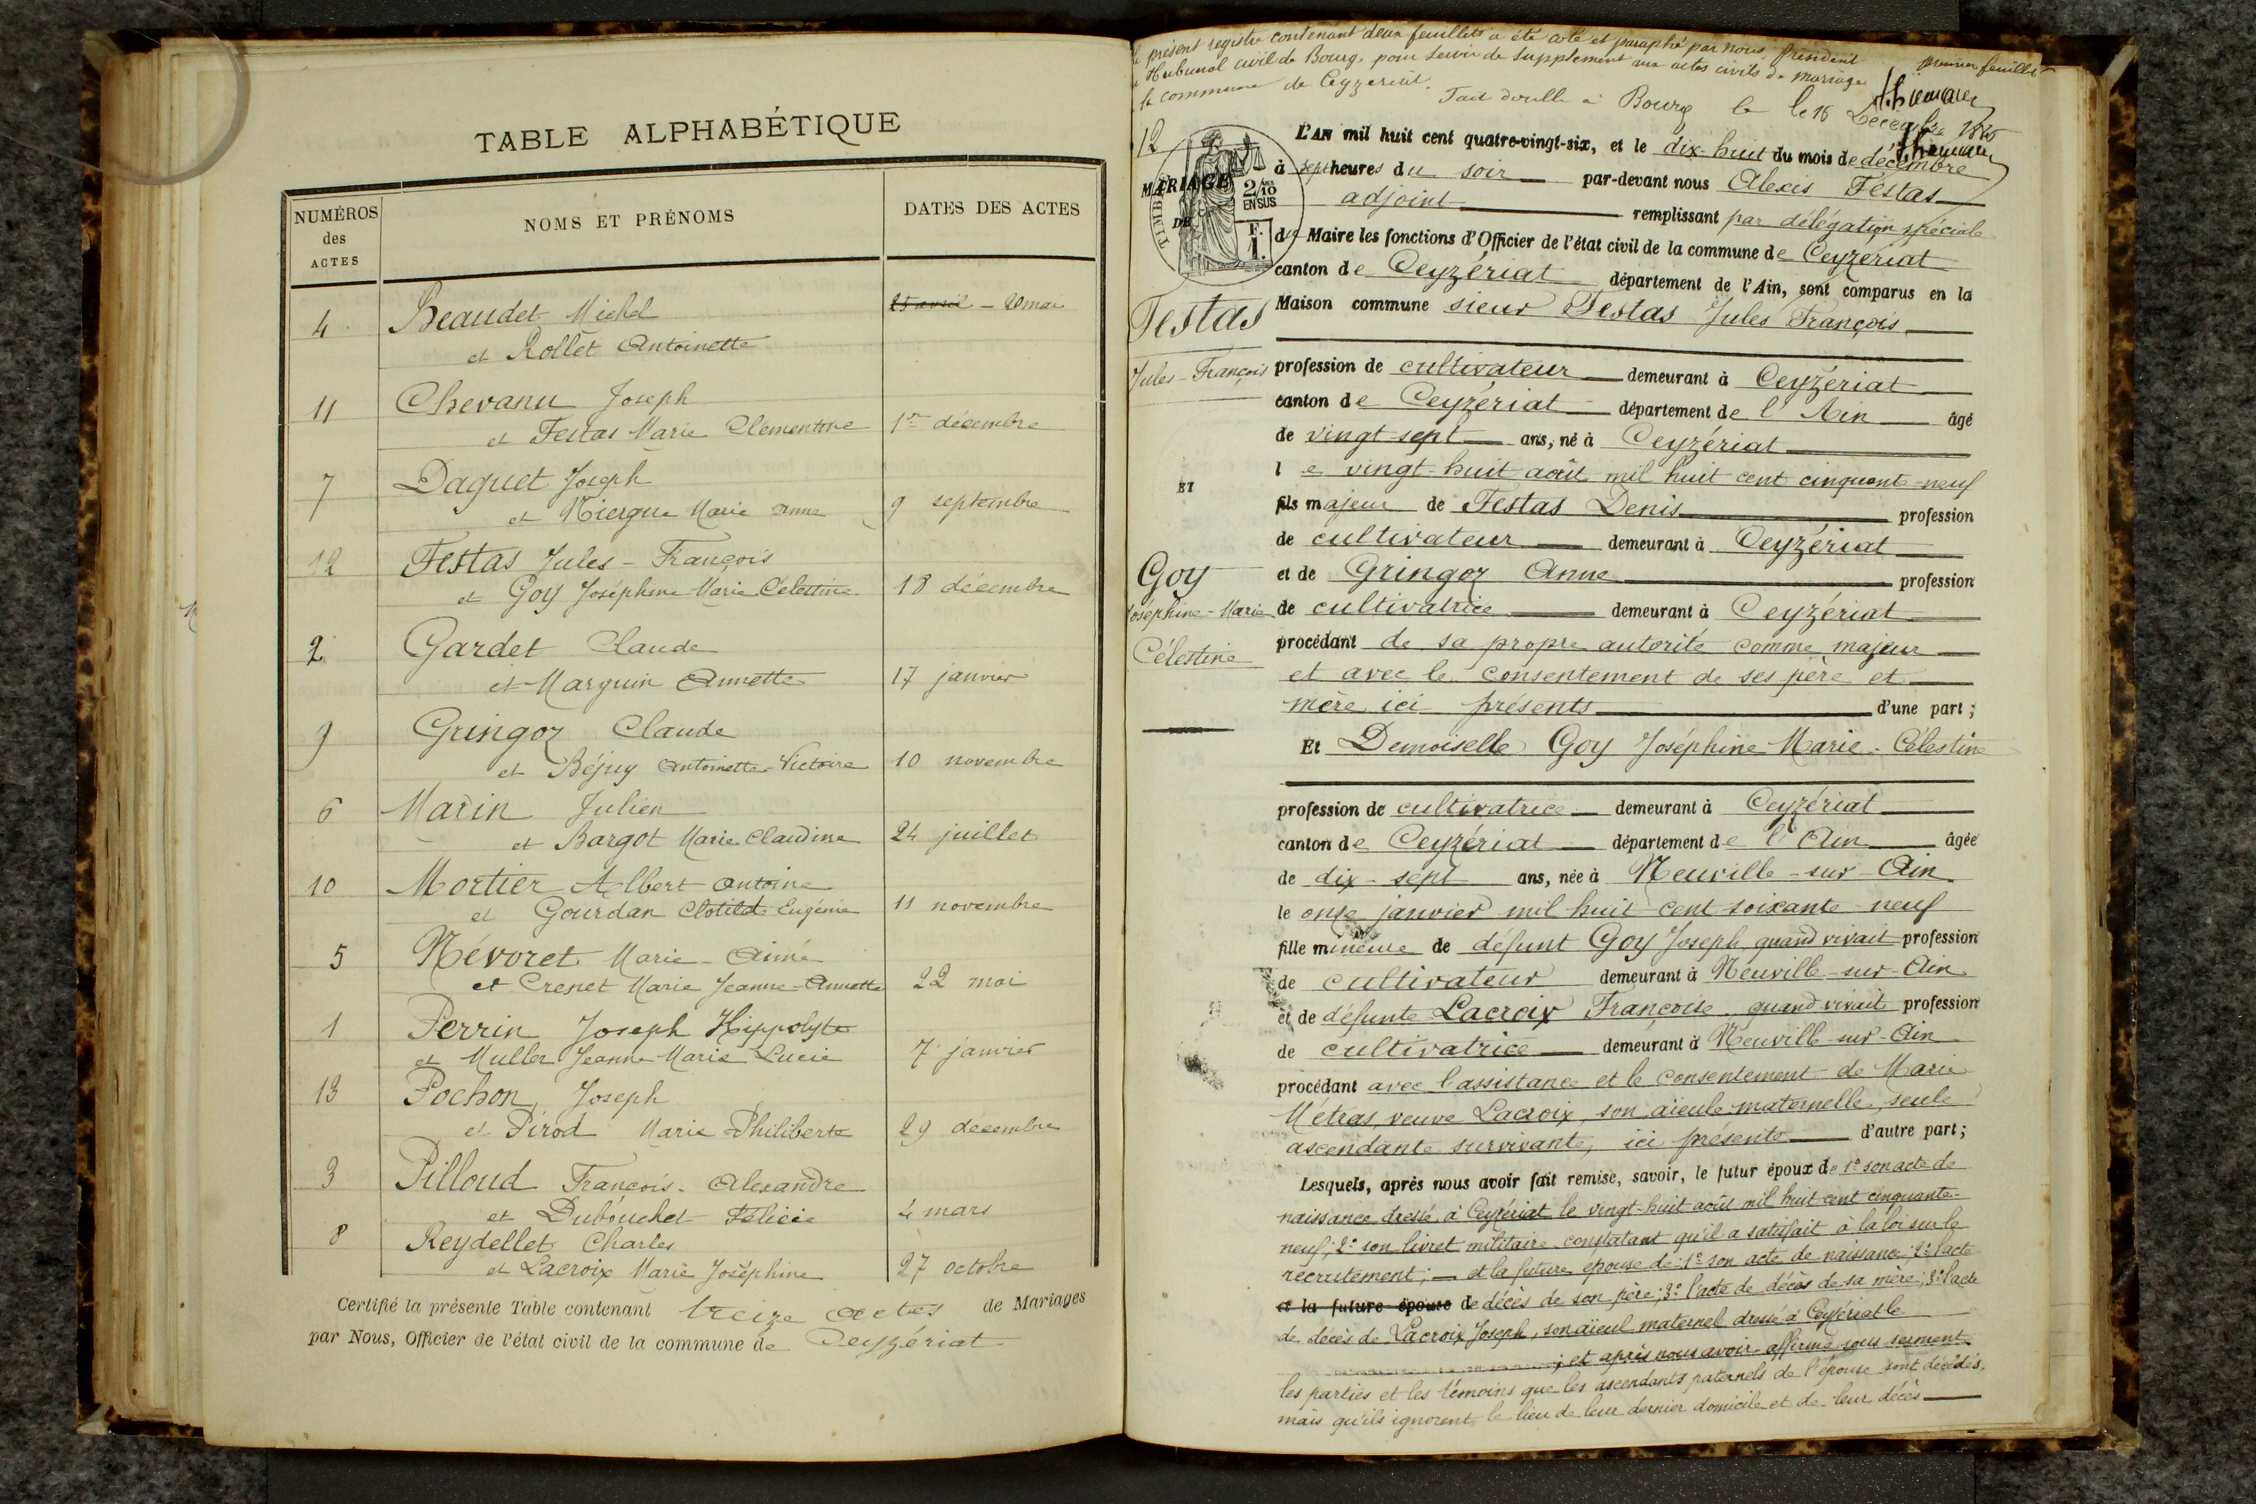 TABLE ALPHABÉTIQUE
NUMÉROS des ACTES
NOMS ET PRÉNOMS
DATES DES ACTES
4 Beaudet Michel 25 avril - 20 mai
et Rollet Antoinette
11 Chevanu Joseph
et Festas Marie Clementine 1er décembre
7 Daguet Joseph
et Niergue Marie Anne 9 septembre
12 Festas Jules-François
et Goy Joséphine Marie Célestine 18 décembre
2 Gardet Claude
et Marguin Annette 17 janvier
9 Gringoz Claude
et Béjuy Antoinette-Victoire 10 novembre
6 Marin Julien
et Bargot Marie Claudine 24 juillet
10 Mortier Albert Antoine
et Gourdan Clotilde Eugénie 11 novembre
5 Névoret Marie-Aimé
et Crenet Marie Jeanne-Annette 22 mai
1 Perrin Joseph Hippolyte
et Muller Jeanne Marie Lucie 7 janvier
13 Pochon Joseph
et Pirod Marie Philiberte 29 décembre
3 Pilloud François-Alexandre
et Dubouchet Félicie 4 mars
8 Reydellet Charles
et Lacroix Marie Joséphine 27 octobre
Certifié la présente Table contenant treize actes de Mariages
par Nous, Officier de l'état civil de la commune de Ceyzériat
présent registre contenant deux feuillets a été coté et paraphé par nous Président
premier feuillet
Tribunal civil de Bourg, pour servir de supplément aux actes civils de mariage
la commune de Ceyzériat.
Fait double à Bourg le 16 Décembre 1886
12
MARIAGE
DE
TIMBRE
2/10
EN SUS
F.
1.
Festas
Jules-François
ET
Goy
Joséphine-Marie
Célestine
L'AN mil huit cent quatre-vingt-six, et le dix-huit du mois de décembre
à sept heures du soir par-devant nous Alexis Festas
adjoint remplissant par délégation spéciale
du Maire les fonctions d'Officier de l'état civil de la commune de Ceyzériat
canton de Ceyzériat département de l'Ain, sont comparus en la
Maison commune sieur Festas Jules François
profession de cultivateur demeurant à Ceyzériat
canton de Ceyzériat département de l'Ain âgé
de vingt-sept ans, né à Ceyzériat
le vingt-huit août mil huit cent cinquante-neuf
fils majeur de Festas Denis profession
de cultivateur demeurant à Ceyzériat
et de Gringoz Anne profession
de cultivatrice demeurant à Ceyzériat
procédant de sa propre autorité comme majeur
et avec le consentement de ses père et
mère ici présents d'une part ;
Et Demoiselle Goy Joséphine-Marie-Célestine
profession de cultivatrice demeurant à Ceyzériat
canton de Ceyzériat département de l'Ain âgée
de dix-sept ans, née à Neuville-sur-Ain
le onze janvier mil huit cent soixante neuf
fille mineure de défunt Goy Joseph quand vivait profession
de cultivateur demeurant à Neuville-sur-Ain
et de défunte Lacroix Françoise quand vivait profession
de cultivatrice demeurant à Neuville-sur-Ain
procédant avec l'assistance et le consentement de Marie
Métras, veuve Lacroix, son aïeule maternelle, seule
ascendante survivante, ici présente d'autre part ;
Lesquels, après nous avoir fait remise, savoir, le futur époux de 1° son acte de
naissance dressé à Ceyzériat le vingt-huit août mil huit cent cinquante-
neuf ; 2° son livret militaire constatant qu'il a satisfait à la loi sur le
recrutement ; et la future épouse de : 1° son acte de naissance ; 2° l'acte
et la future épouse de décès de son père ; 3° l'acte de décès de sa mère ; 3° l'acte
de décès de Lacroix Joseph, son aïeul maternel dressé à Ceyzériat le
; et après nous avoir affirmé sous serment
les parties et les témoins que les ascendants paternels de l'épouse sont décédés,
mais qu'ils ignorent le lieu de leur dernier domicile et de leur décès